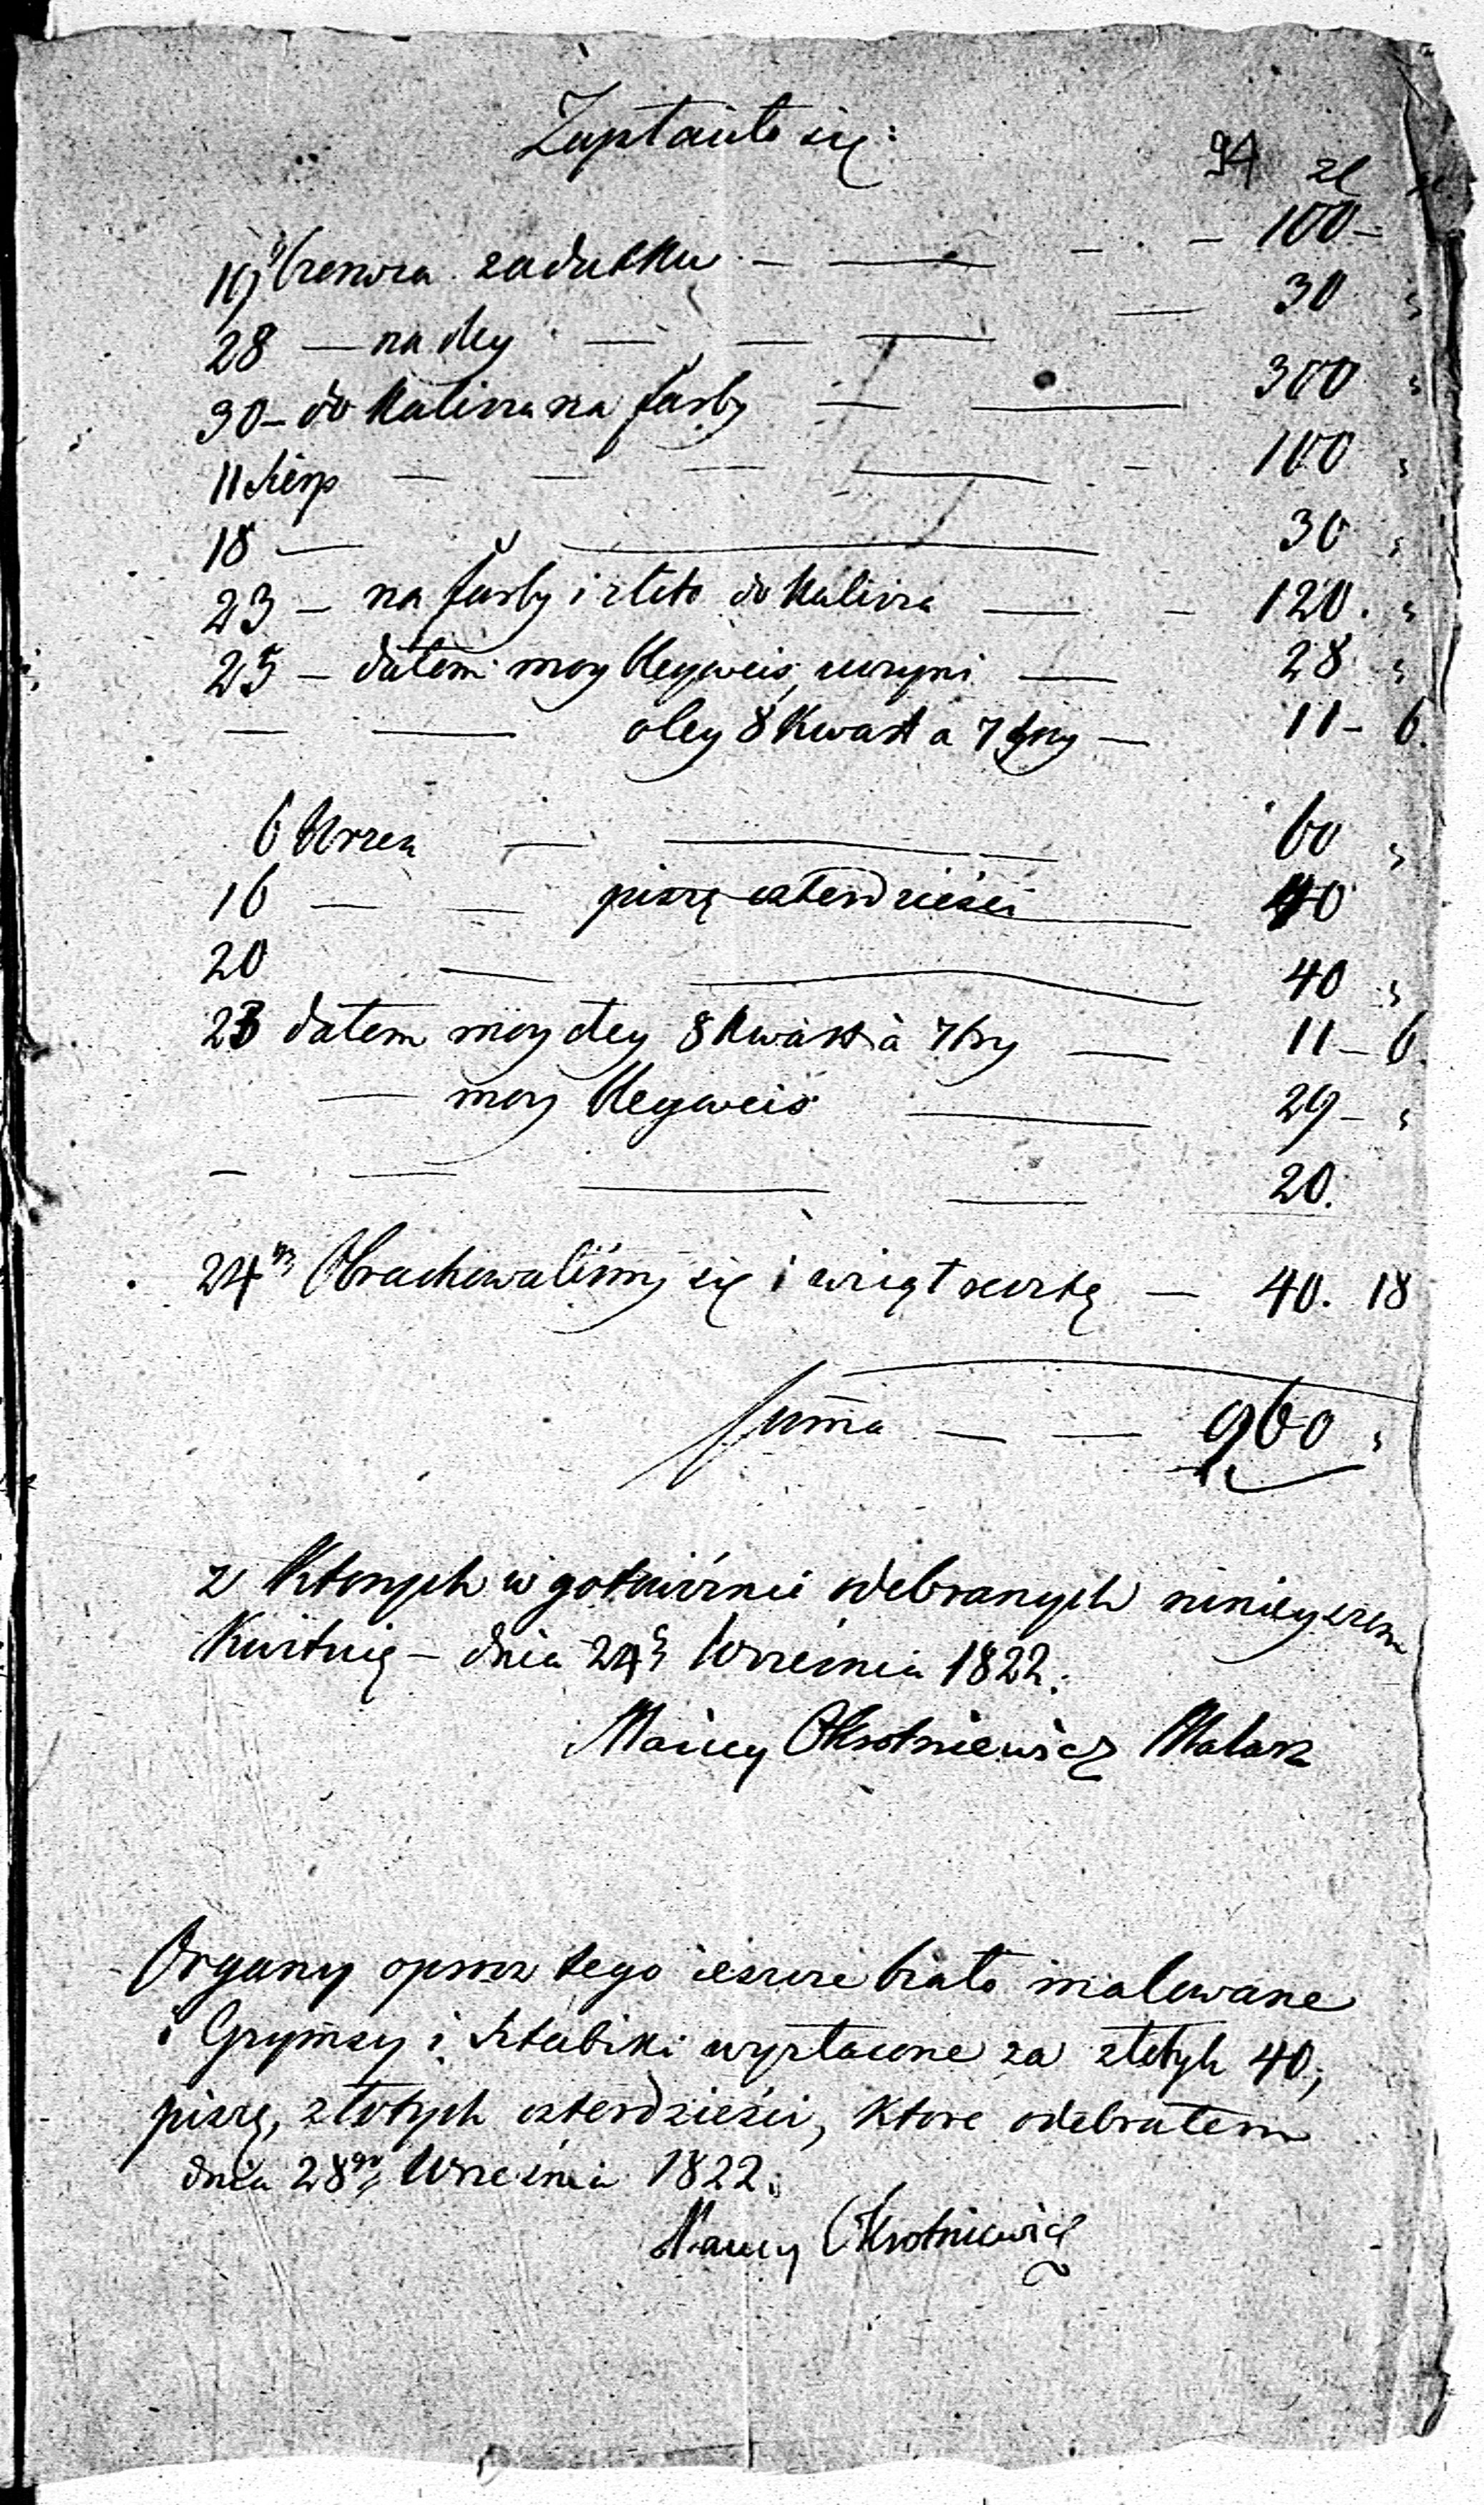 Zapłaciło się:
94 zł
19 Czerwca zadatku — — — 100 —
28 — na oley — — — 30 "
30 — do Kalisza na farby — — 300 "
11 Sierp — — — — 100 "
18 — — 30 "
23 — na farby i złoto do Kalisza — — 120. "
25 — dałem moy bleyweis — 28 "
— — oley 8 Kwart a 7 — 11 — 6.
6 Wrzes — — 60 "
16 — — piszę czterdzieści — 40
20 — — 40 "
23 dałem moy oley 8 Kwart à 7 — 11 — 6.
— moy bleyweis — 29 — "
— — — — 20.
24 Obrachowaliśmy się i wziął resztę — 40. 18
Suma — — 960 "
z Ktorych w gotowiźnie odebranych ninieyszem
Kwituię — dnia 24 Września 1822.
Maciey Okrotniewicz Malarz
Organy oprocz tego ieszcze biało malowane
i Grymsy i Słubiki wyzłacone za złotych 40,
piszę, złotych czterdzieści, Ktore odebrałem
dnia 28go Września 1822.
Maciey Okrotniewicz